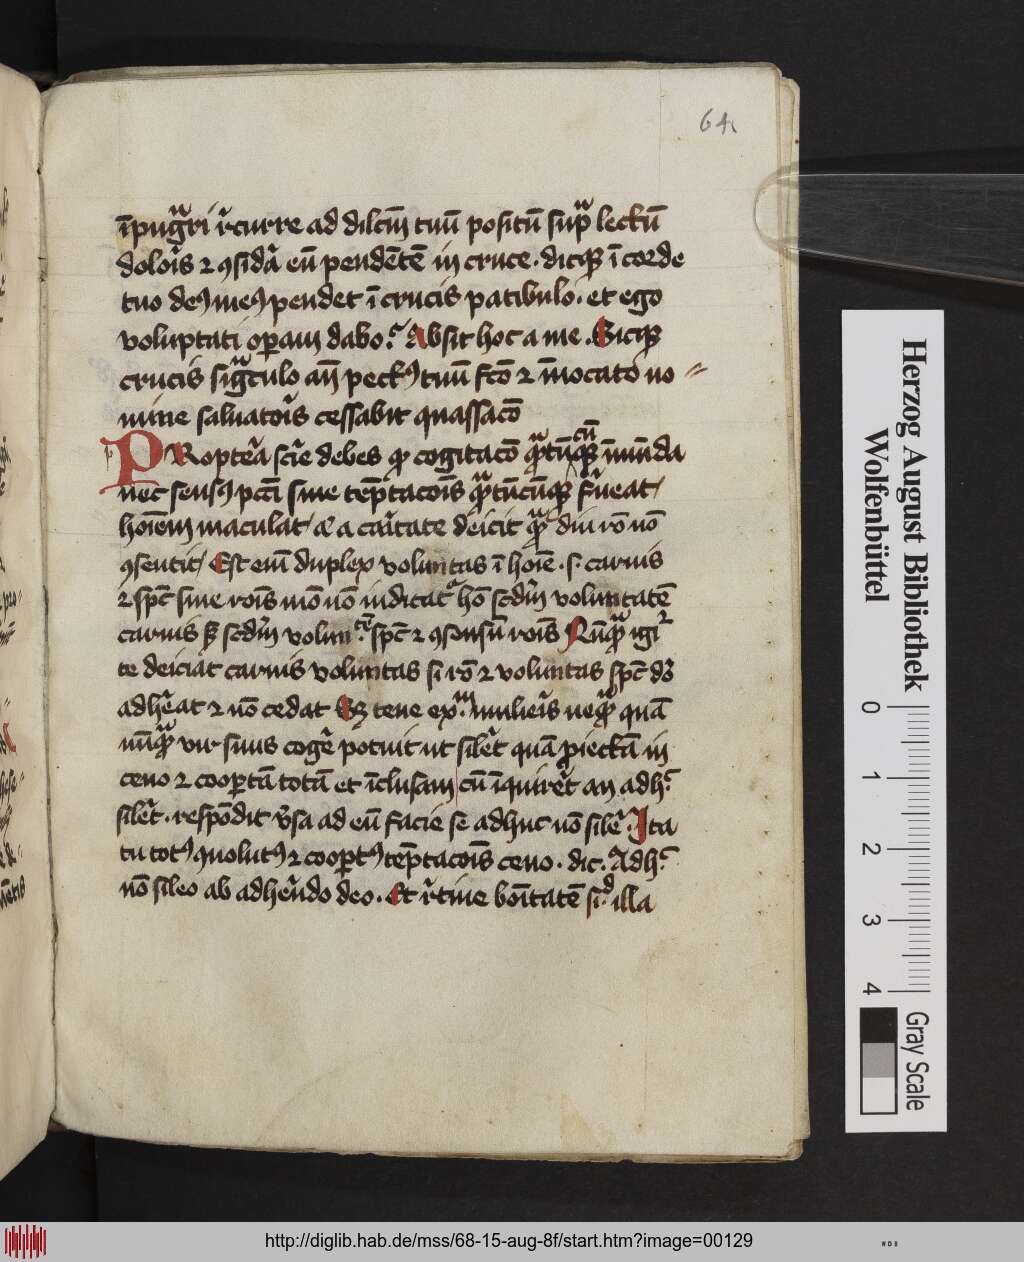 64
īpugᷓri r̄curre ad dilcm̄ tuū positū supᷓ lectū
dolor̄is ⁊ ꝯsidᷓa eū pendētē in cruce. dicqꝫ ī corde
tuo deꝰ meꝰ pendet ī crucis patibulo. et ego
voluptati oꝑam dabo? Absit hoc a me. Sicqꝫ
crucis sigᷓculo an̄ pectꝰ tuū fc̄o ⁊ īuocato no
mine saluator̄is cessabit quassaco̅
PRopter̄a scīe debes ꝙ cogitaco̅ qᷓtūcūqꝫ īmūda
nec sensꝰ pcc̄i sine tēptaco̅is qᷓtūcūqꝫ fūeat
hoīem maculat a caritate deicit qᷓ diu ro̅ no̅
ꝯsentit Est enī duplex voluntas ī hoīe. s. carnis
⁊ spc̄ sine ro̅is mo̅ no̅ iudicat᷑ ho̅ scdm̄ voluntatē
carnis sꝫ scdm̄ volun.tē spc̄ ⁊ ꝯsensū ro̅is Nūqᷓ igr̄
te deiciat carnis voluntas si ro̅ ⁊ voluntas spc̄ do̅
adhēat ⁊ no̅ cedat Sꝫ tene ex.m mulier̄is neqᷓ quā
nūqᷓ vir suus cogē potuit ut silēt quā proiectā in
ceno ⁊ cooꝑtā totā et īclusam cū īquirēt an adh.c
silēt. respo̅dit v̄sa ad eū facie se adhuc no̅ silē. Ita
tu totꝰ ꝯuolutꝰ ⁊ cooꝑtꝰ tēptaco̅is ceno. dic. Adh.c
no̅ sileo ab adhēndo deo. Et r̄tine bo̅itatē si.d illa
Herzog August Bibliothek
Wolfenbüttel
0 1 2 3 4
Gray Scale
http://diglib.hab.de/mss/68-15-aug-8f/start.htm?image=00129